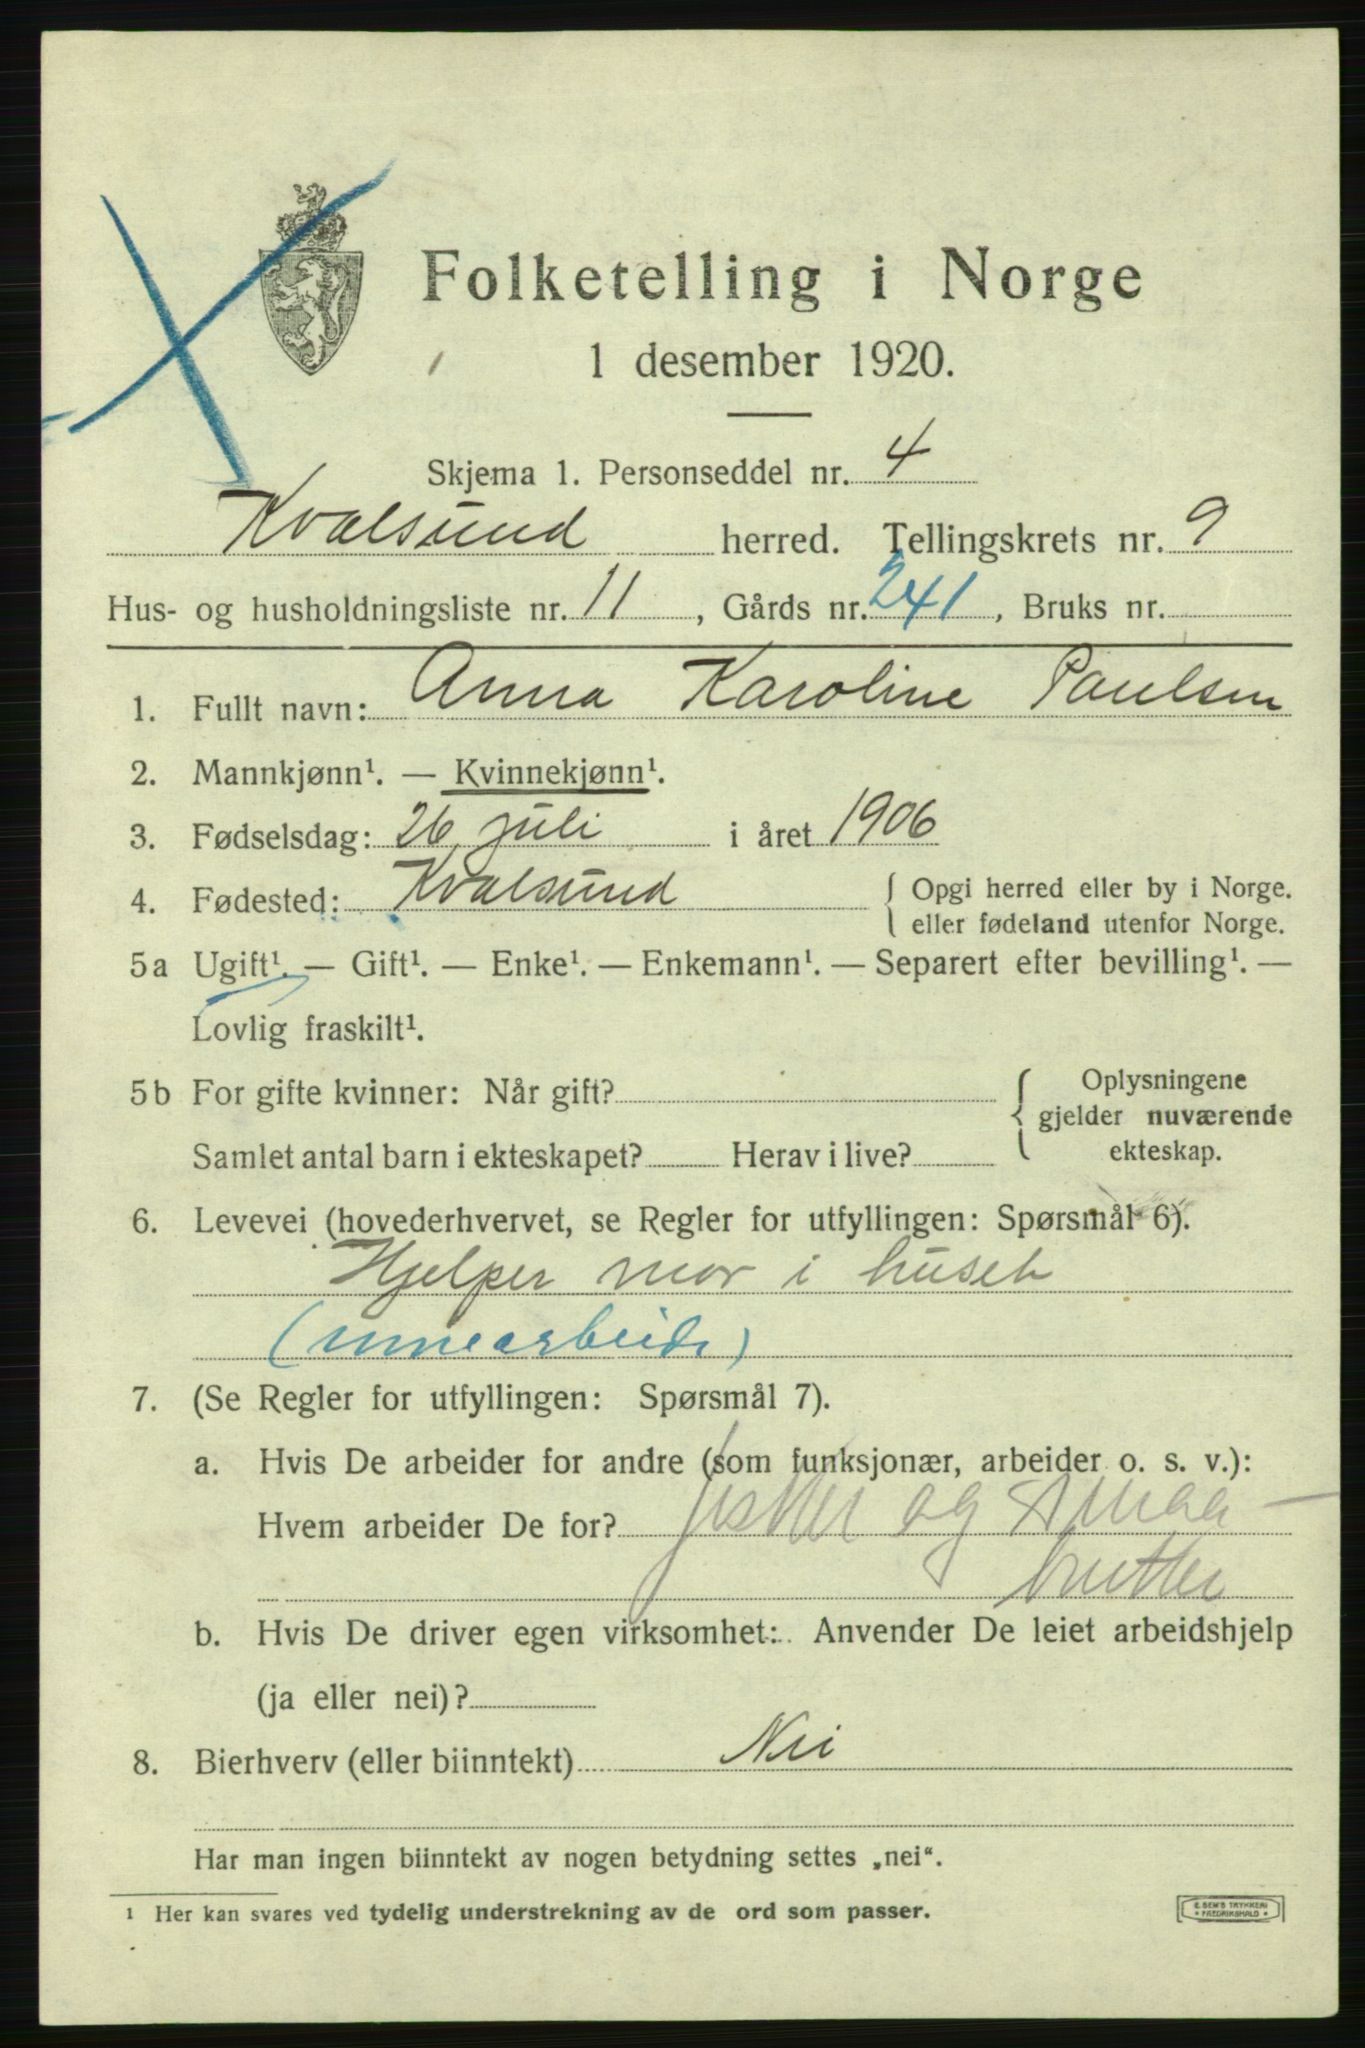 Folketelling i Norge
1 desember 1920.
Skjema 1. Personseddel nr. 4
Kvalsund herred. Tellingskrets nr. 9
Hus- og husholdningsliste nr. 11, Gårds nr. 241, Bruks nr.
1. Fullt navn: Anna Karoline Paulsen
2. Mannkjønn¹. — Kvinnekjønn¹.
3. Fødselsdag: 26 juli i året 1906
4. Fødested: Kvalsund { Opgi herred eller by i Norge.
eller fødeland utenfor Norge.
5a Ugift¹. — Gift¹. — Enke¹. — Enkemann¹. — Separert efter bevilling¹. —
Lovlig fraskilt¹.
5b For gifte kvinner: Når gift? { Oplysningene
gjelder nuværende
Samlet antal barn i ekteskapet? Herav i live? ekteskap.
6. Levevei (hovederhvervet, se Regler for utfyllingen: Spørsmål 6).
Hjelper mor i huset
(innearbeide)
7. (Se Regler for utfyllingen: Spørsmål 7).
a. Hvis De arbeider for andre (som funksjonær, arbeider o. s. v.):
Hvem arbeider De for? fisker og smaa-
bruker
b. Hvis De driver egen virksomhet: Anvender De leiet arbeidshjelp
(ja eller nei)?
8. Bierhverv (eller biinntekt) Nei
Har man ingen biinntekt av nogen betydning settes „nei“.
¹ Her kan svares ved tydelig understrekning av de ord som passer.
E. SEM'S TRYKKERI
FREDRIKSHALD